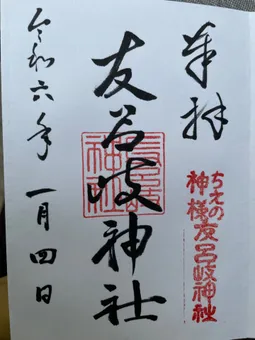 奉拝
ちえの
神様友呂岐神社
友呂岐神社
令和六年 一月四日